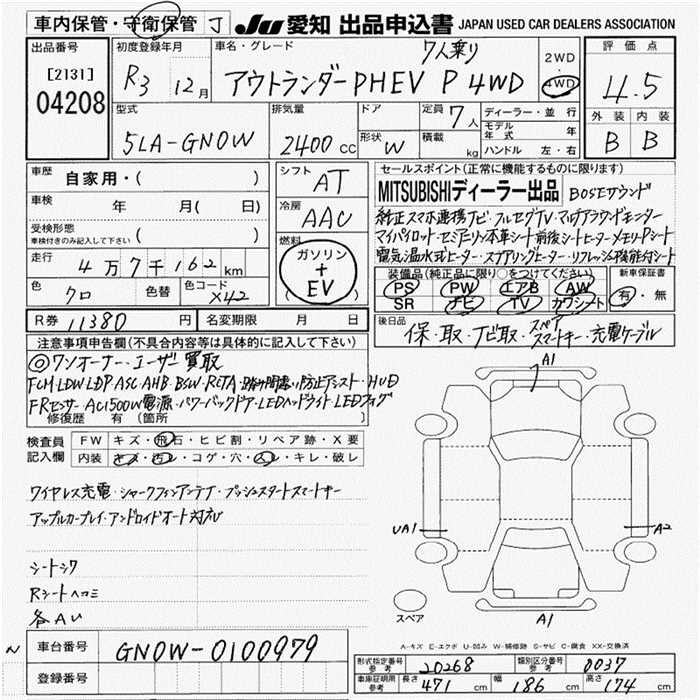 車内保管・守衛保管 J JU 愛知 出品申込書 JAPAN USED CAR DEALERS ASSOCIATION
出品番号 [2131] 04208
初度登録年月 R3 12月
車名・グレード 7人乗り アウトランダーPHEV P 4WD
2WD 4WD
評価点 4.5
外装 B 内装 B
型式 5LA-GN0W
排気量 2400 cc
ドア 形状 W
定員 7人 積載 kg
ディーラー・並行
モデル年式 年
ハンドル 左・右
車歴 自家用・( )
車検 年 月( 日)
受検形態 車検付きのみ記入して下さい ( )
走行 4万7千162km
色 クロ 色替 色コード X42
シフト AT
冷房 AAC
燃料 ガソリン + EV
セールスポイント(正常に機能するものに限ります)
MITSUBISHIディーラー出品 BOSEサウンド
純正スマホ連携ナビ・フルセグTV・マルチアラウンドモニター
マイパイロット・セミアニリン本革シート前後シートヒーターメモリーPシート
電気温水式ヒーター・ステアリングヒーター・リフレッシュ機能付シート
装備品(純正品に限り○をつけてください)
PS PW エアB AW
SR ナビ TV カワシート
新車保証書 有・無
R券 11380 円 名変期限 月 日
後日品 保・取・ナビ取・スペアスマートキー・充電ケーブル
注意事項申告欄(不具合内容等は具体的に記入して下さい)
◎ワンオーナー・ユーザー買取
FCM・LDW・LDP・ASC・AHB・BSW・RCTA・踏み間違い防止アシスト・HUD
FRセンサー・AC1500W電源・パワーバックドア・LEDヘッドライト LEDフォグ
修復歴 有 (箇所 )
検査員記入欄
FW キズ・飛石・ヒビ割・リペア跡・X要
内装 キズ・汚レ・コゲ・穴・スレ・キレ・破レ
ワイヤレス充電・シャークフィンアンテナ・プッシュスタートスマートキー
アップルカープレイ・アンドロイドオート対応
シートシワ
Rシートヘコミ
各AU
A1
UA1
A2
スペア
A1
A-キズ E-エクボ U-凹み W-補修跡 S-サビ C-腐食 XX-交換済
N 車台番号 GN0W-0100979
登録番号
形式指定番号 参考 20268 類別区分番号 参考 0037
車庫証明用 参考 長さ 471 cm 幅 186 cm 高さ 174 cm